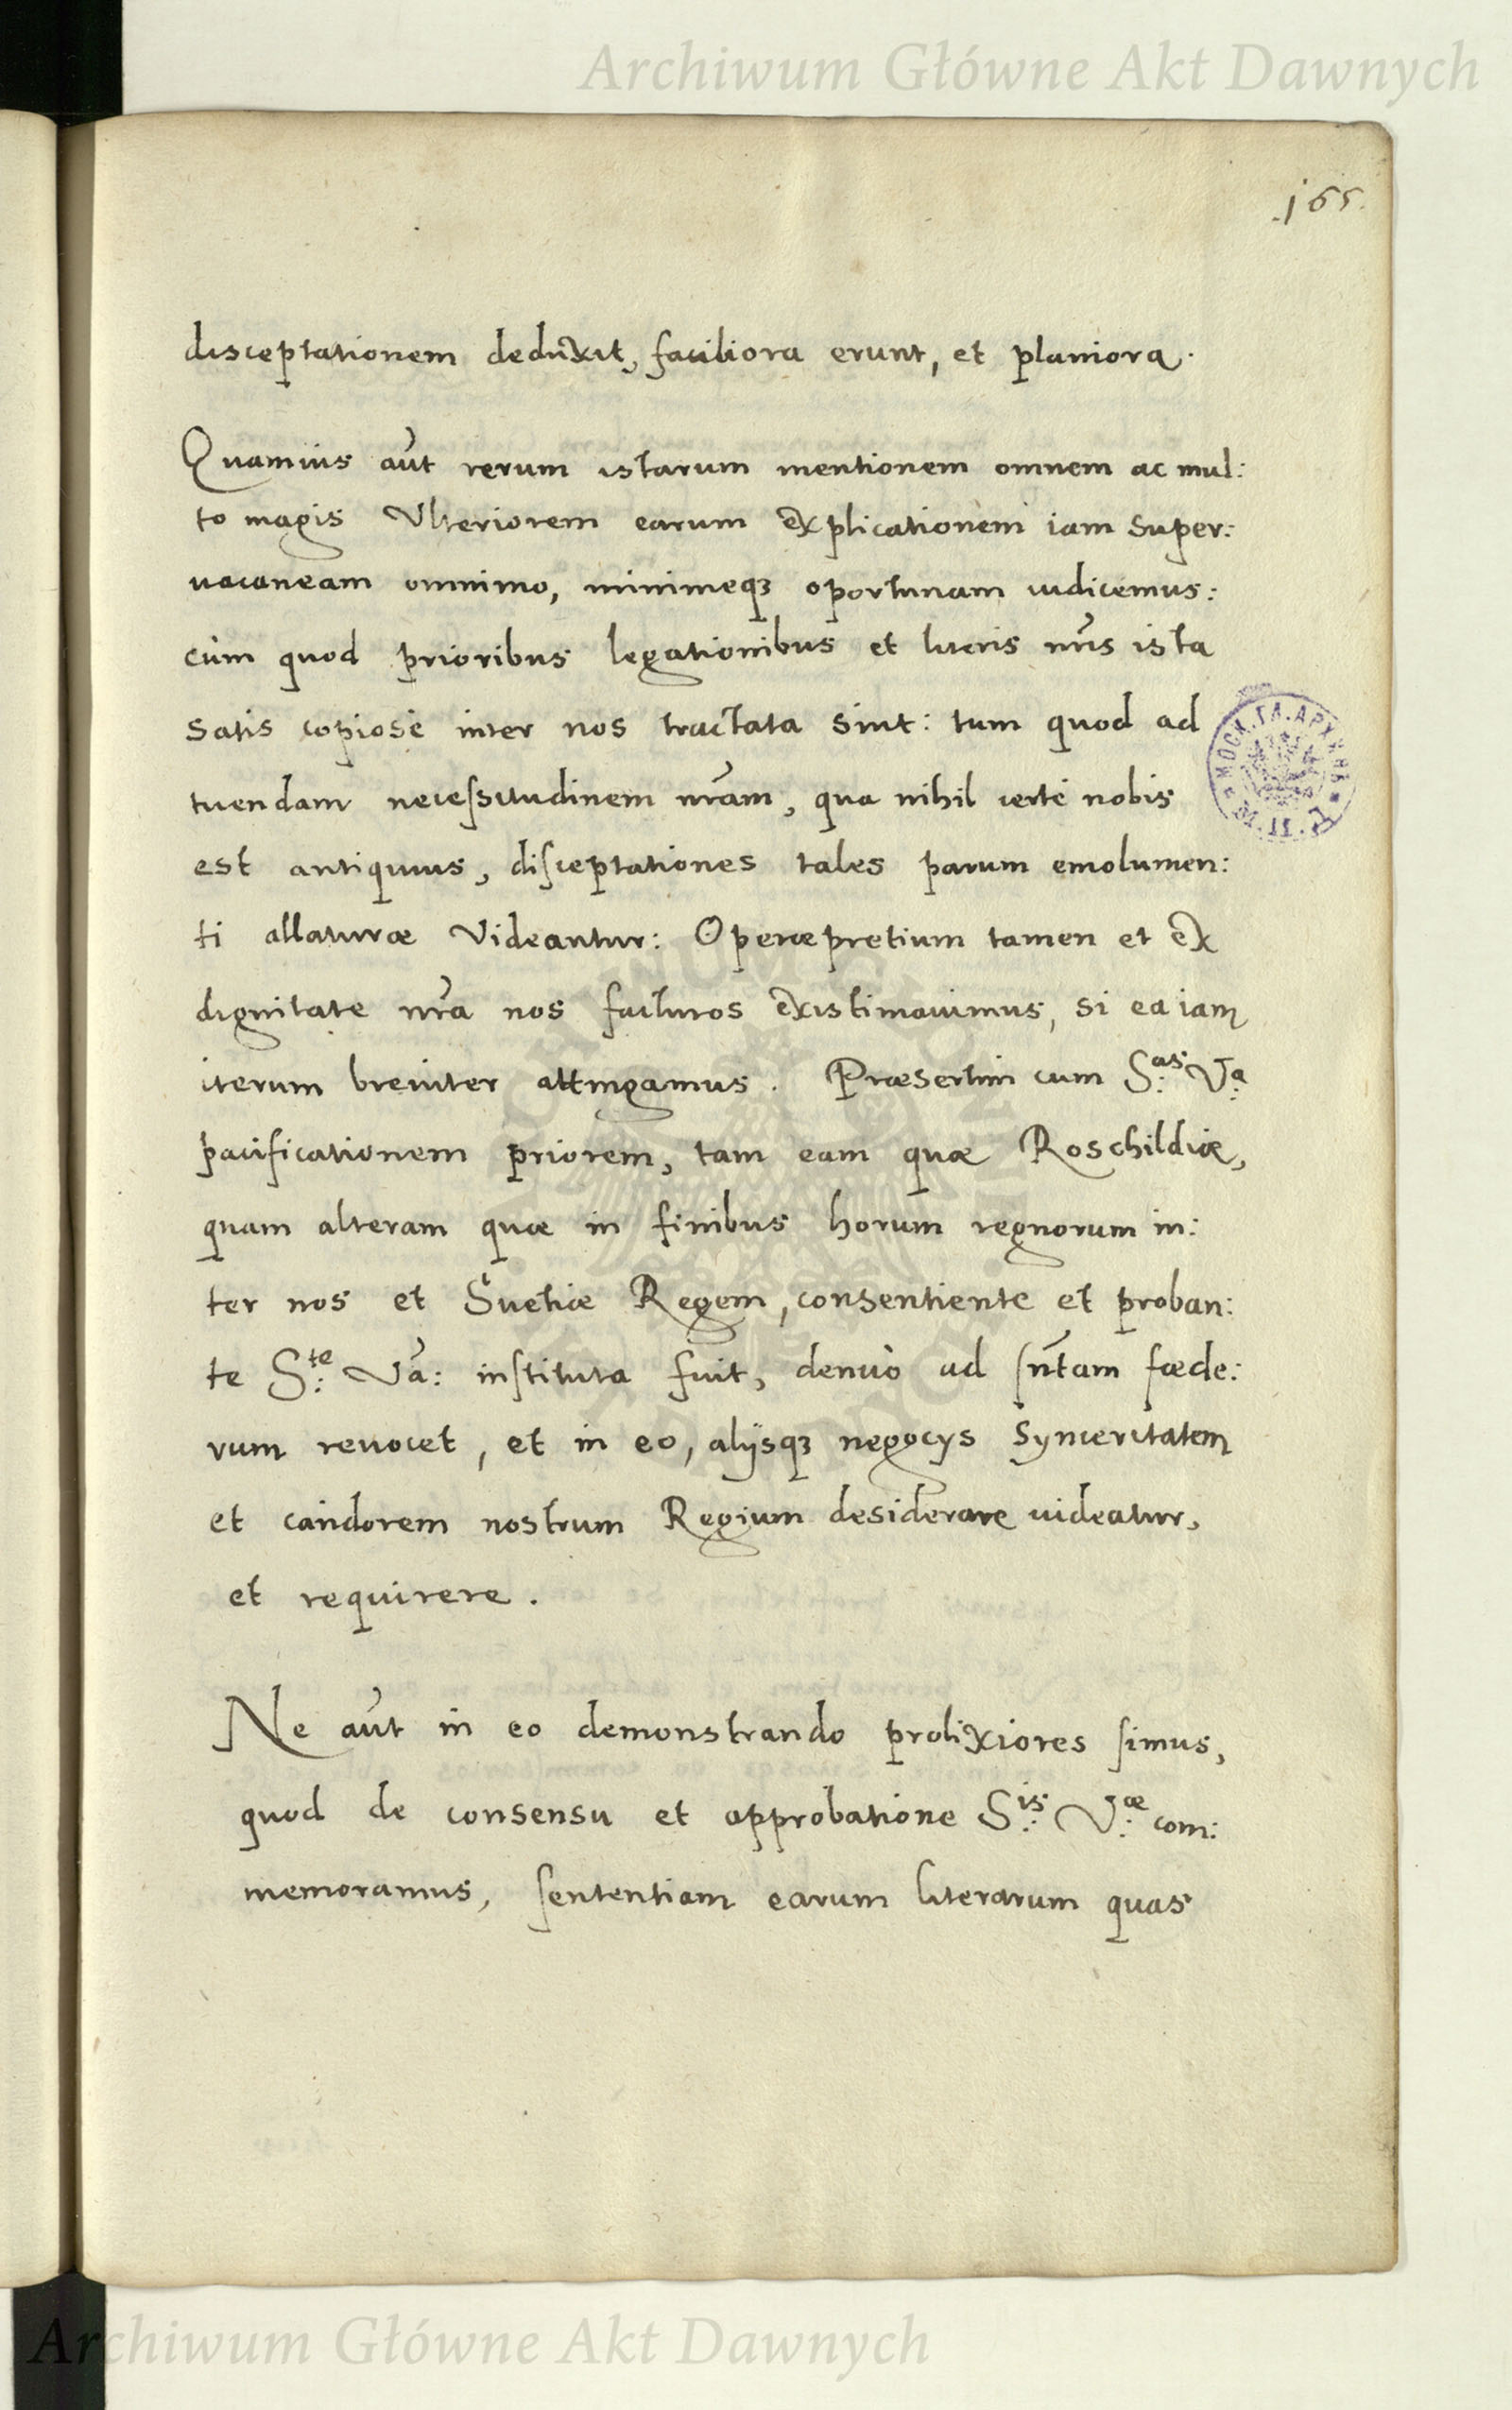 Archiwum Główne Akt Dawnych
.165.
disceptationem deduxit, faciliora erunt, et planiora.
Quamuis aut̃ rerum istarum mentionem omnem ac mul:
to magis Vlteriorem earum explicationem iam super:
uacaneam omnino, minimeqꝫ oportunam iudicemus:
cùm quod prioribus legationibus et literis nr̃is ista
satis copiosè inter nos tractata sint: tum quod ad
tuendam necessitudinem nr̃am, qua nihil certè nobis
est antiquius, disceptationes tales parum emolumen:
ti allaturæ Videantur: Operæpretium tamen et ex
dignitate nr̃a nos facturos existimauimus, si ea iam
iterum breuiter attingamus. Præsertim cum S:ᵃˢ V:ᵃ
pacificationem priorem, tam eam quæ Roschildiæ,
quam alteram quæ in finibus horum regnorum in:
ter nos et Suetiæ Regem, consentiente et proban:
te S:ᵗᵉ Vã: instituta fuit, denuò ad sñtam fæde:
rum reuocet, et in eo, alijsqꝫ negocys synceritatem
et candorem nostrum Regium desiderare uideatur,
et requirere.
Ne aut̃ in eo demonstrando prolixiores simus,
quod de consensu et approbatione S:ⁱˢ V:æ com:
memoramus, sententiam earum literarum quas
МОСК. ГЛ. АРХИВЪ
Archiwum Główne Akt Dawnych